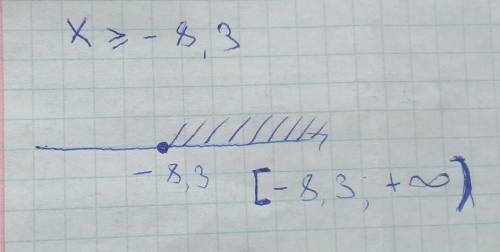 x ≥ -8,3
-8,3 [-8,3; +∞)